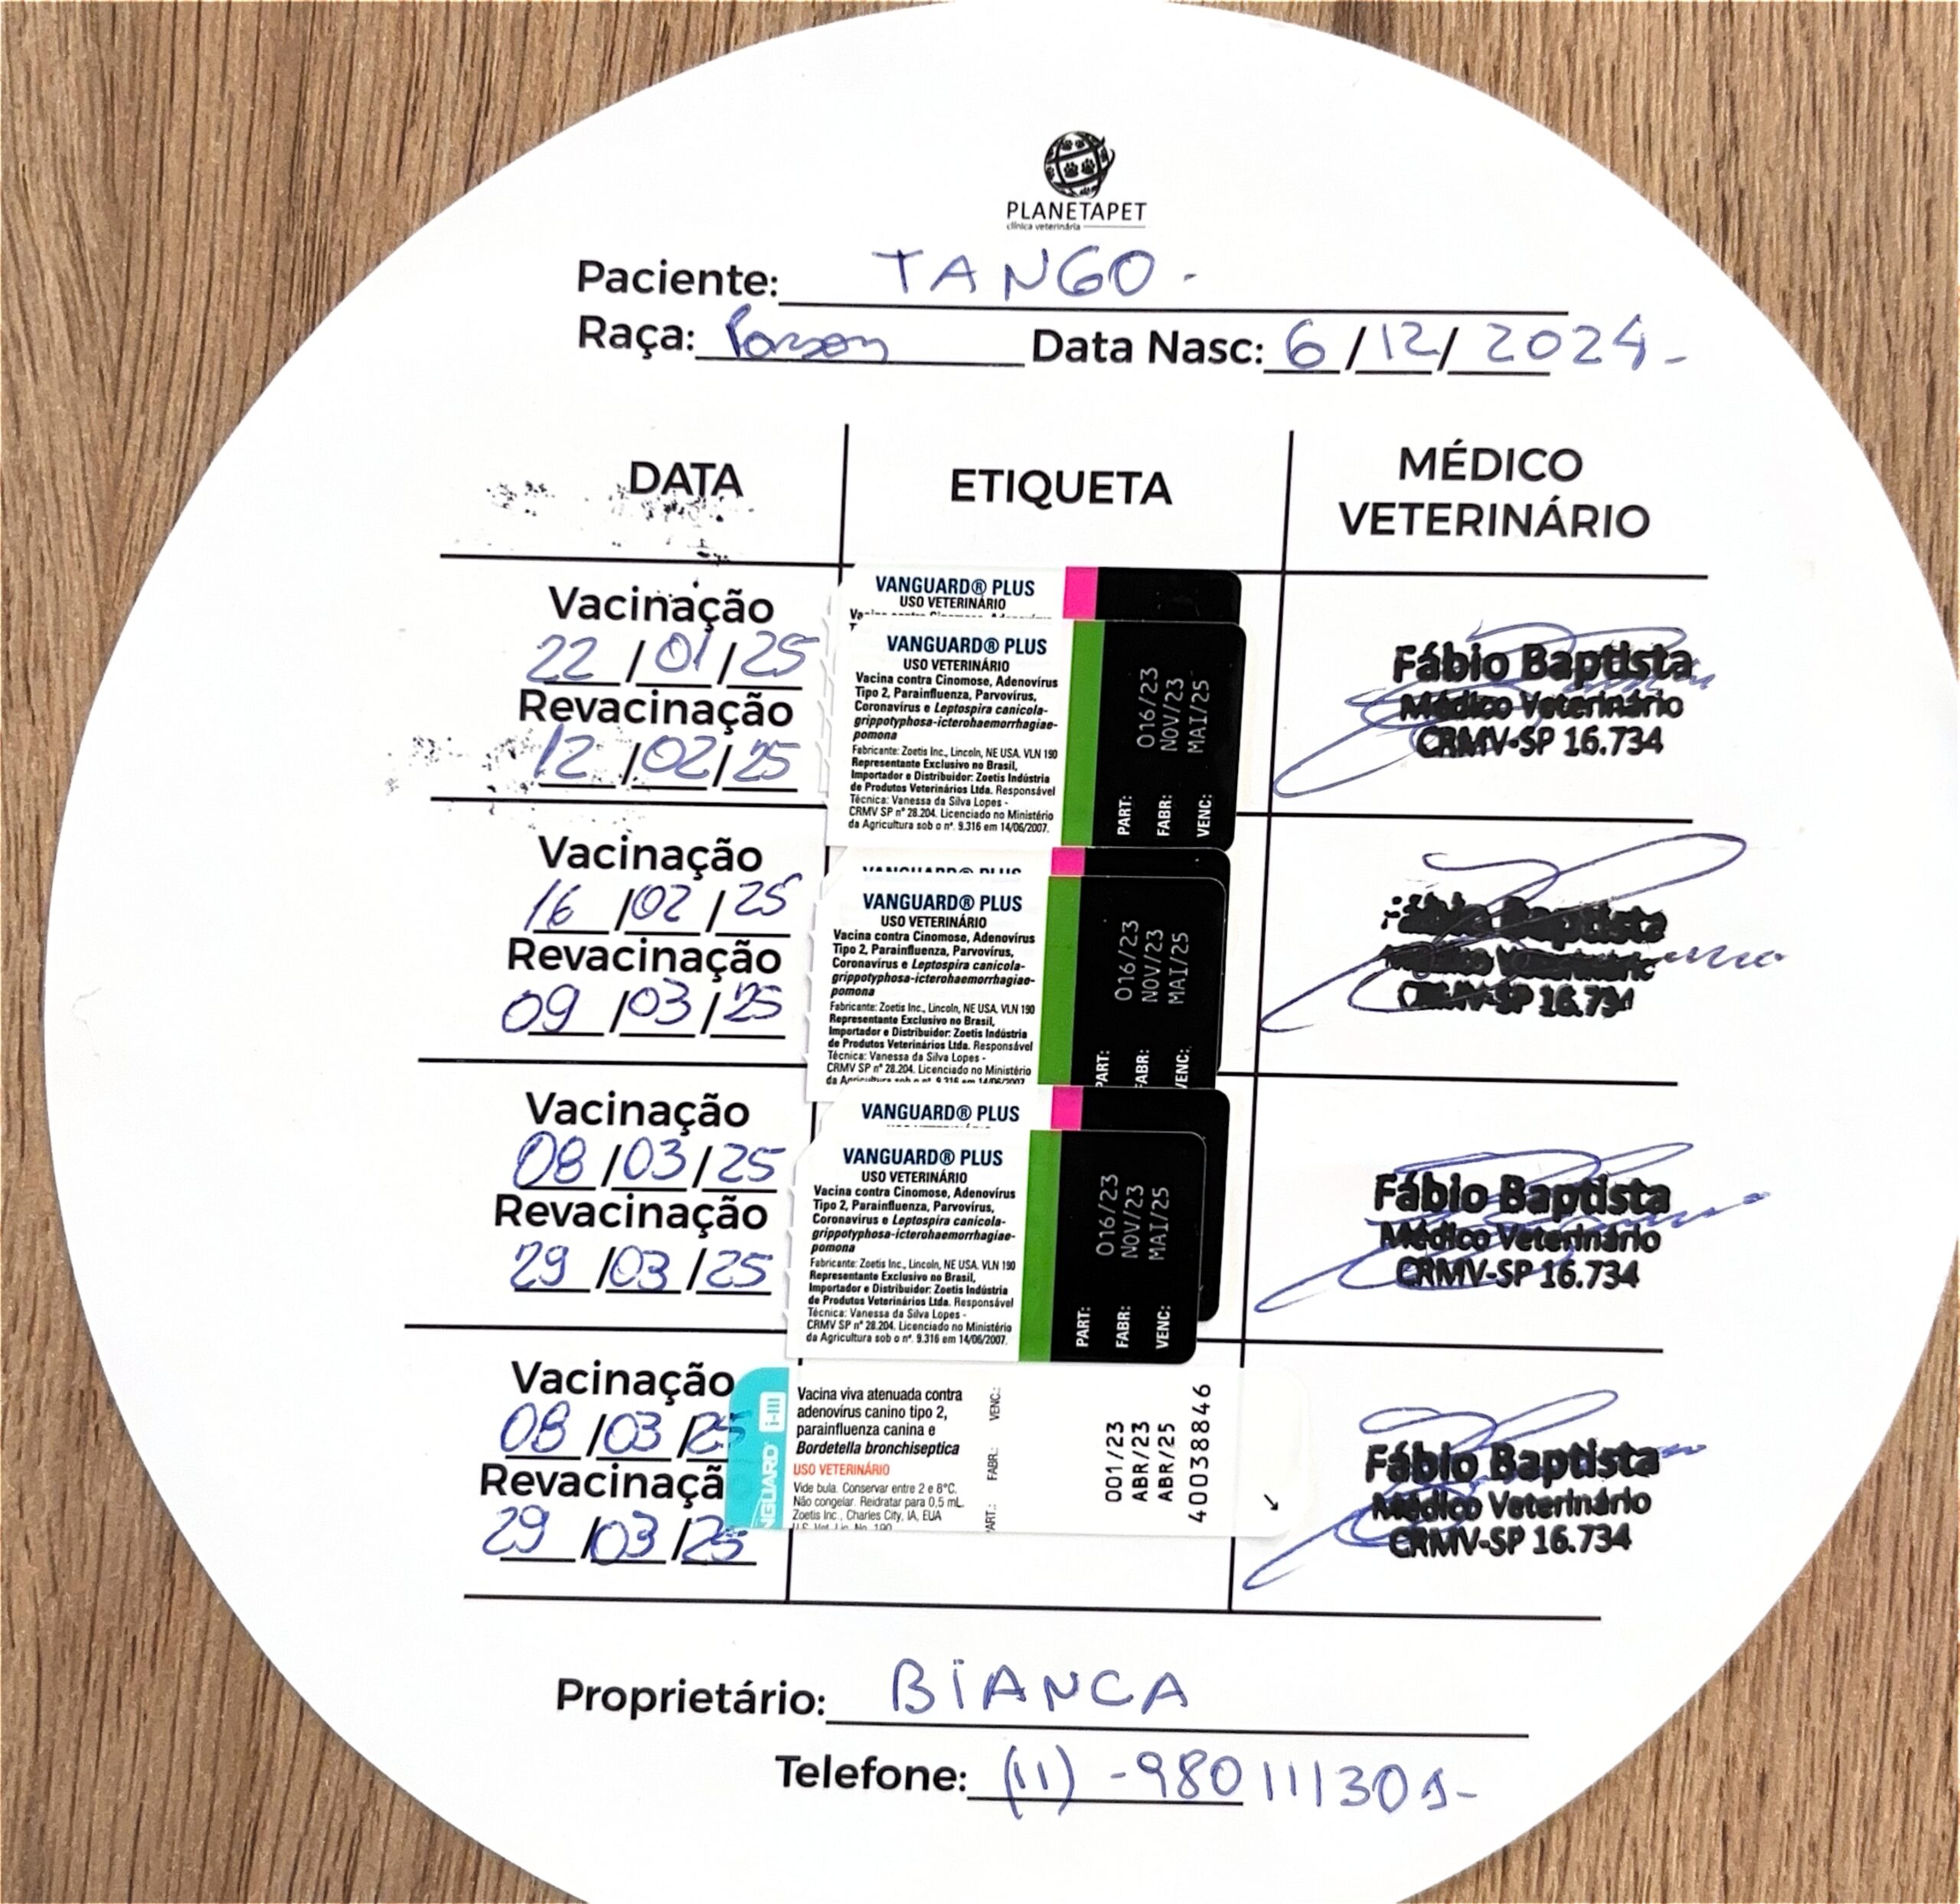 PLANETAPET
clínica veterinária
Paciente: TANGO -
Raça: Parson Data Nasc: 6/12/2024-
DATA ETIQUETA MÉDICO VETERINÁRIO
Vacinação
22/01/25
Revacinação
12/02/25
VANGUARD® PLUS
USO VETERINÁRIO
VANGUARD® PLUS
USO VETERINÁRIO
Vacina contra Cinomose, Adenovírus
Tipo 2, Parainfluenza, Parvovírus,
Coronavírus e Leptospira canicola-
grippotyphosa-icterohaemorrhagiae-
pomona
Fabricante: Zoetis Inc., Lincoln, NE USA. VLN 190
Representante Exclusivo no Brasil,
Importador e Distribuidor: Zoetis Indústria
de Produtos Veterinários Ltda. Responsável
Técnica: Vanessa da Silva Lopes -
CRMV SP nº 28.204. Licenciado no Ministério
da Agricultura sob o nº. 9.316 em 14/06/2007.
PART: 016/23
FABR: NOV/23
VENC: MAI/25
Fábio Baptista
Médico Veterinário
CRMV-SP 16.734
Vacinação
16/02/25
Revacinação
09/03/25
VANGUARD® PLUS
VANGUARD® PLUS
USO VETERINÁRIO
Vacina contra Cinomose, Adenovírus
Tipo 2, Parainfluenza, Parvovírus,
Coronavírus e Leptospira canicola-
grippotyphosa-icterohaemorrhagiae-
pomona
Fabricante: Zoetis Inc., Lincoln, NE USA. VLN 190
Representante Exclusivo no Brasil,
Importador e Distribuidor: Zoetis Indústria
de Produtos Veterinários Ltda. Responsável
Técnica: Vanessa da Silva Lopes -
CRMV SP nº 28.204. Licenciado no Ministério
da Agricultura sob o nº. 9.316 em 14/06/2007
PART: 016/23
FABR: NOV/23
VENC: MAI/25
Fábio Baptista
Médico Veterinário
CRMV-SP 16.734
Vacinação
08/03/25
Revacinação
29/03/25
VANGUARD® PLUS
VANGUARD® PLUS
USO VETERINÁRIO
Vacina contra Cinomose, Adenovírus
Tipo 2, Parainfluenza, Parvovírus,
Coronavírus e Leptospira canicola-
grippotyphosa-icterohaemorrhagiae-
pomona
Fabricante: Zoetis Inc., Lincoln, NE USA. VLN 190
Representante Exclusivo no Brasil,
Importador e Distribuidor: Zoetis Indústria
de Produtos Veterinários Ltda. Responsável
Técnica: Vanessa da Silva Lopes -
CRMV SP nº 28.204. Licenciado no Ministério
da Agricultura sob o nº. 9.316 em 14/06/2007.
PART: 016/23
FABR: NOV/23
VENC: MAI/25
Fábio Baptista
Médico Veterinário
CRMV-SP 16.734
Vacinação
08/03/25
Revacinaçã
29/03/25
NGUARD i-III
Vacina viva atenuada contra
adenovírus canino tipo 2,
parainfluenza canina e
Bordetella bronchiseptica
USO VETERINÁRIO
Vide bula. Conservar entre 2 e 8°C.
Não congelar. Reidratar para 0,5 mL.
Zoetis Inc., Charles City, IA, EUA
U.S. Vet. Lic. No. 190
ART.: FABR.: VENC.:
001/23
ABR/23
ABR/25
40038846
Fábio Baptista
Médico Veterinário
CRMV-SP 16.734
Proprietário: BIANCA
Telefone: (11) -980111301-